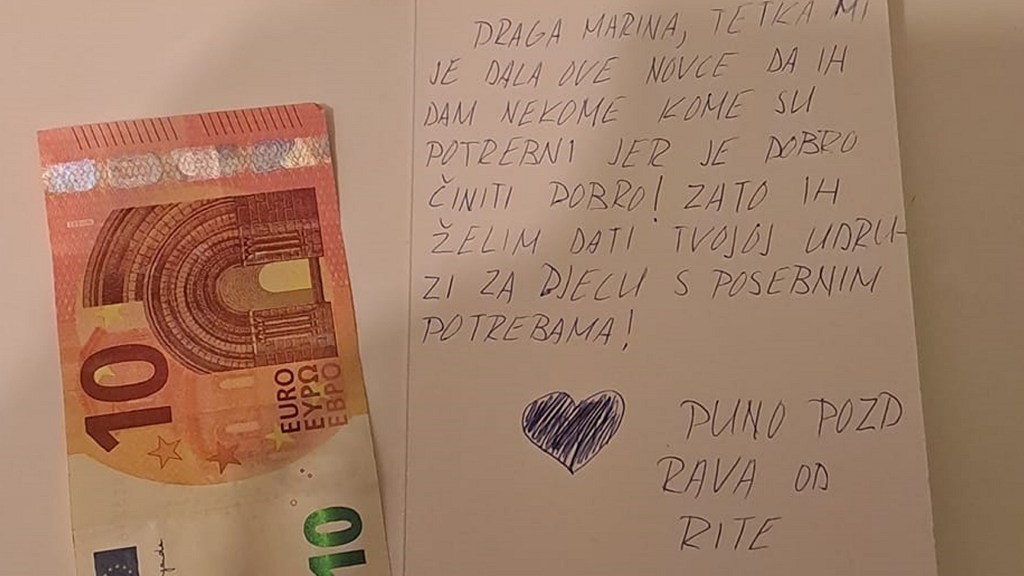 DRAGA MARINA, TETKA MI
JE DALA OVE NOVCE DA IH
DAM NEKOME KOME SU
POTREBNI JER JE DOBRO
ČINITI DOBRO! ZATO IH
ŽELIM DATI TVOJOJ UDRU-
ZI ZA DJECU S POSEBNIM
POTREBAMA!
PUNO POZD
RAVA OD
RITE
10
EURO
ΕΥΡΩ
ЕВРО
10